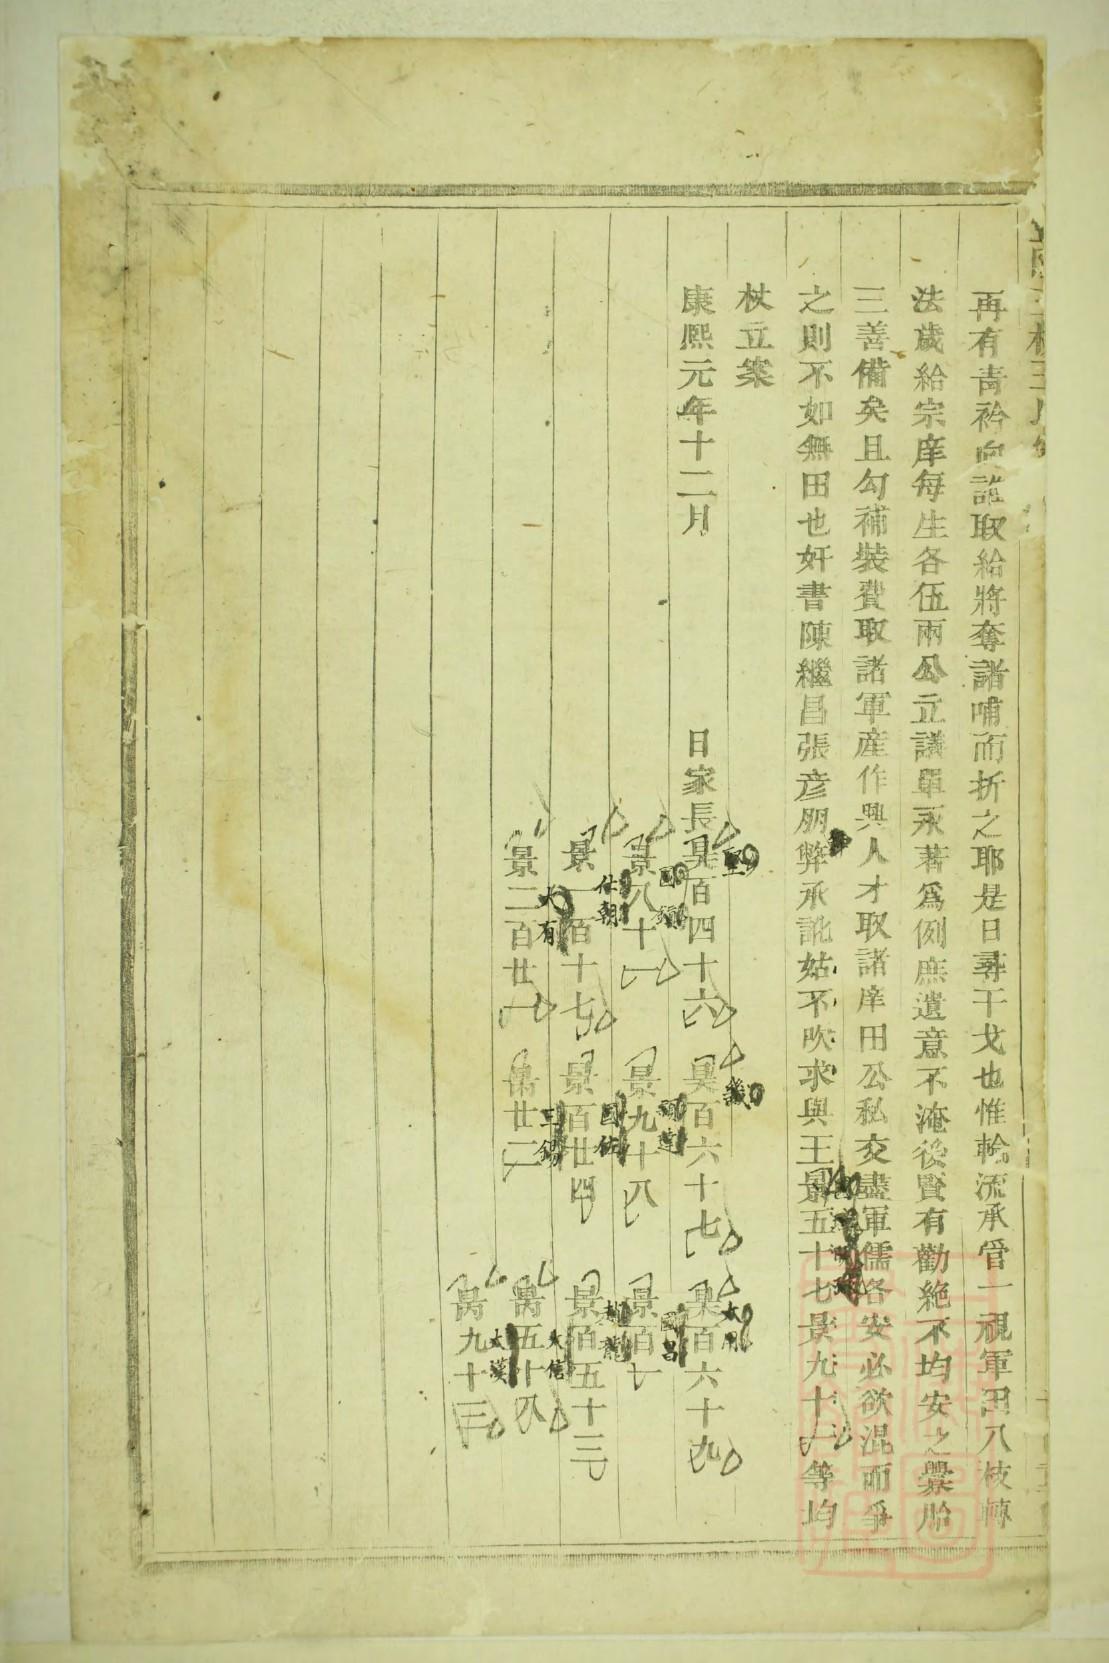 再有青衿向誰取給將奪諸哺而折之耶是日尋干戈也惟輪流承管一視軍田八枝轉
法歲給宗庠每生各伍兩公立議單永著為例庶遺意不淹後賢有勸絶不均安之釁胎
三善備矣且勾補裝費取諸軍産作興人才取諸庠田公私交盡軍儒各安必欲混而爭
之則不如無田也奸書陳繼昌張彦朋弊承訛姑不吹求與王景五十七景九十一等均
杖立案
康熙元年十二月
日家長昊百四十六 昊百六十七 昊百六十九
景八十一 景九十八 景百七
景一百十七 景百廿四 景百五十三
景二百廿一 萬廿二 萬五十八
萬九十三
國
幾
大用
國昌
仕朝
國佐
龍
大有
三錫
大信
大漢